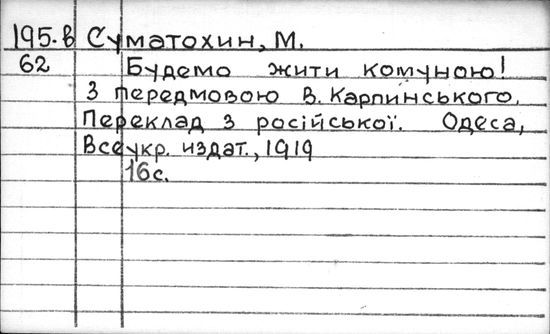 195.В Суматохин, М.
62 Будемо жити комуною!
З передмовою В. Карпинського.
Переклад з російської. Одеса,
Всеукр. издат., 1919
16с.